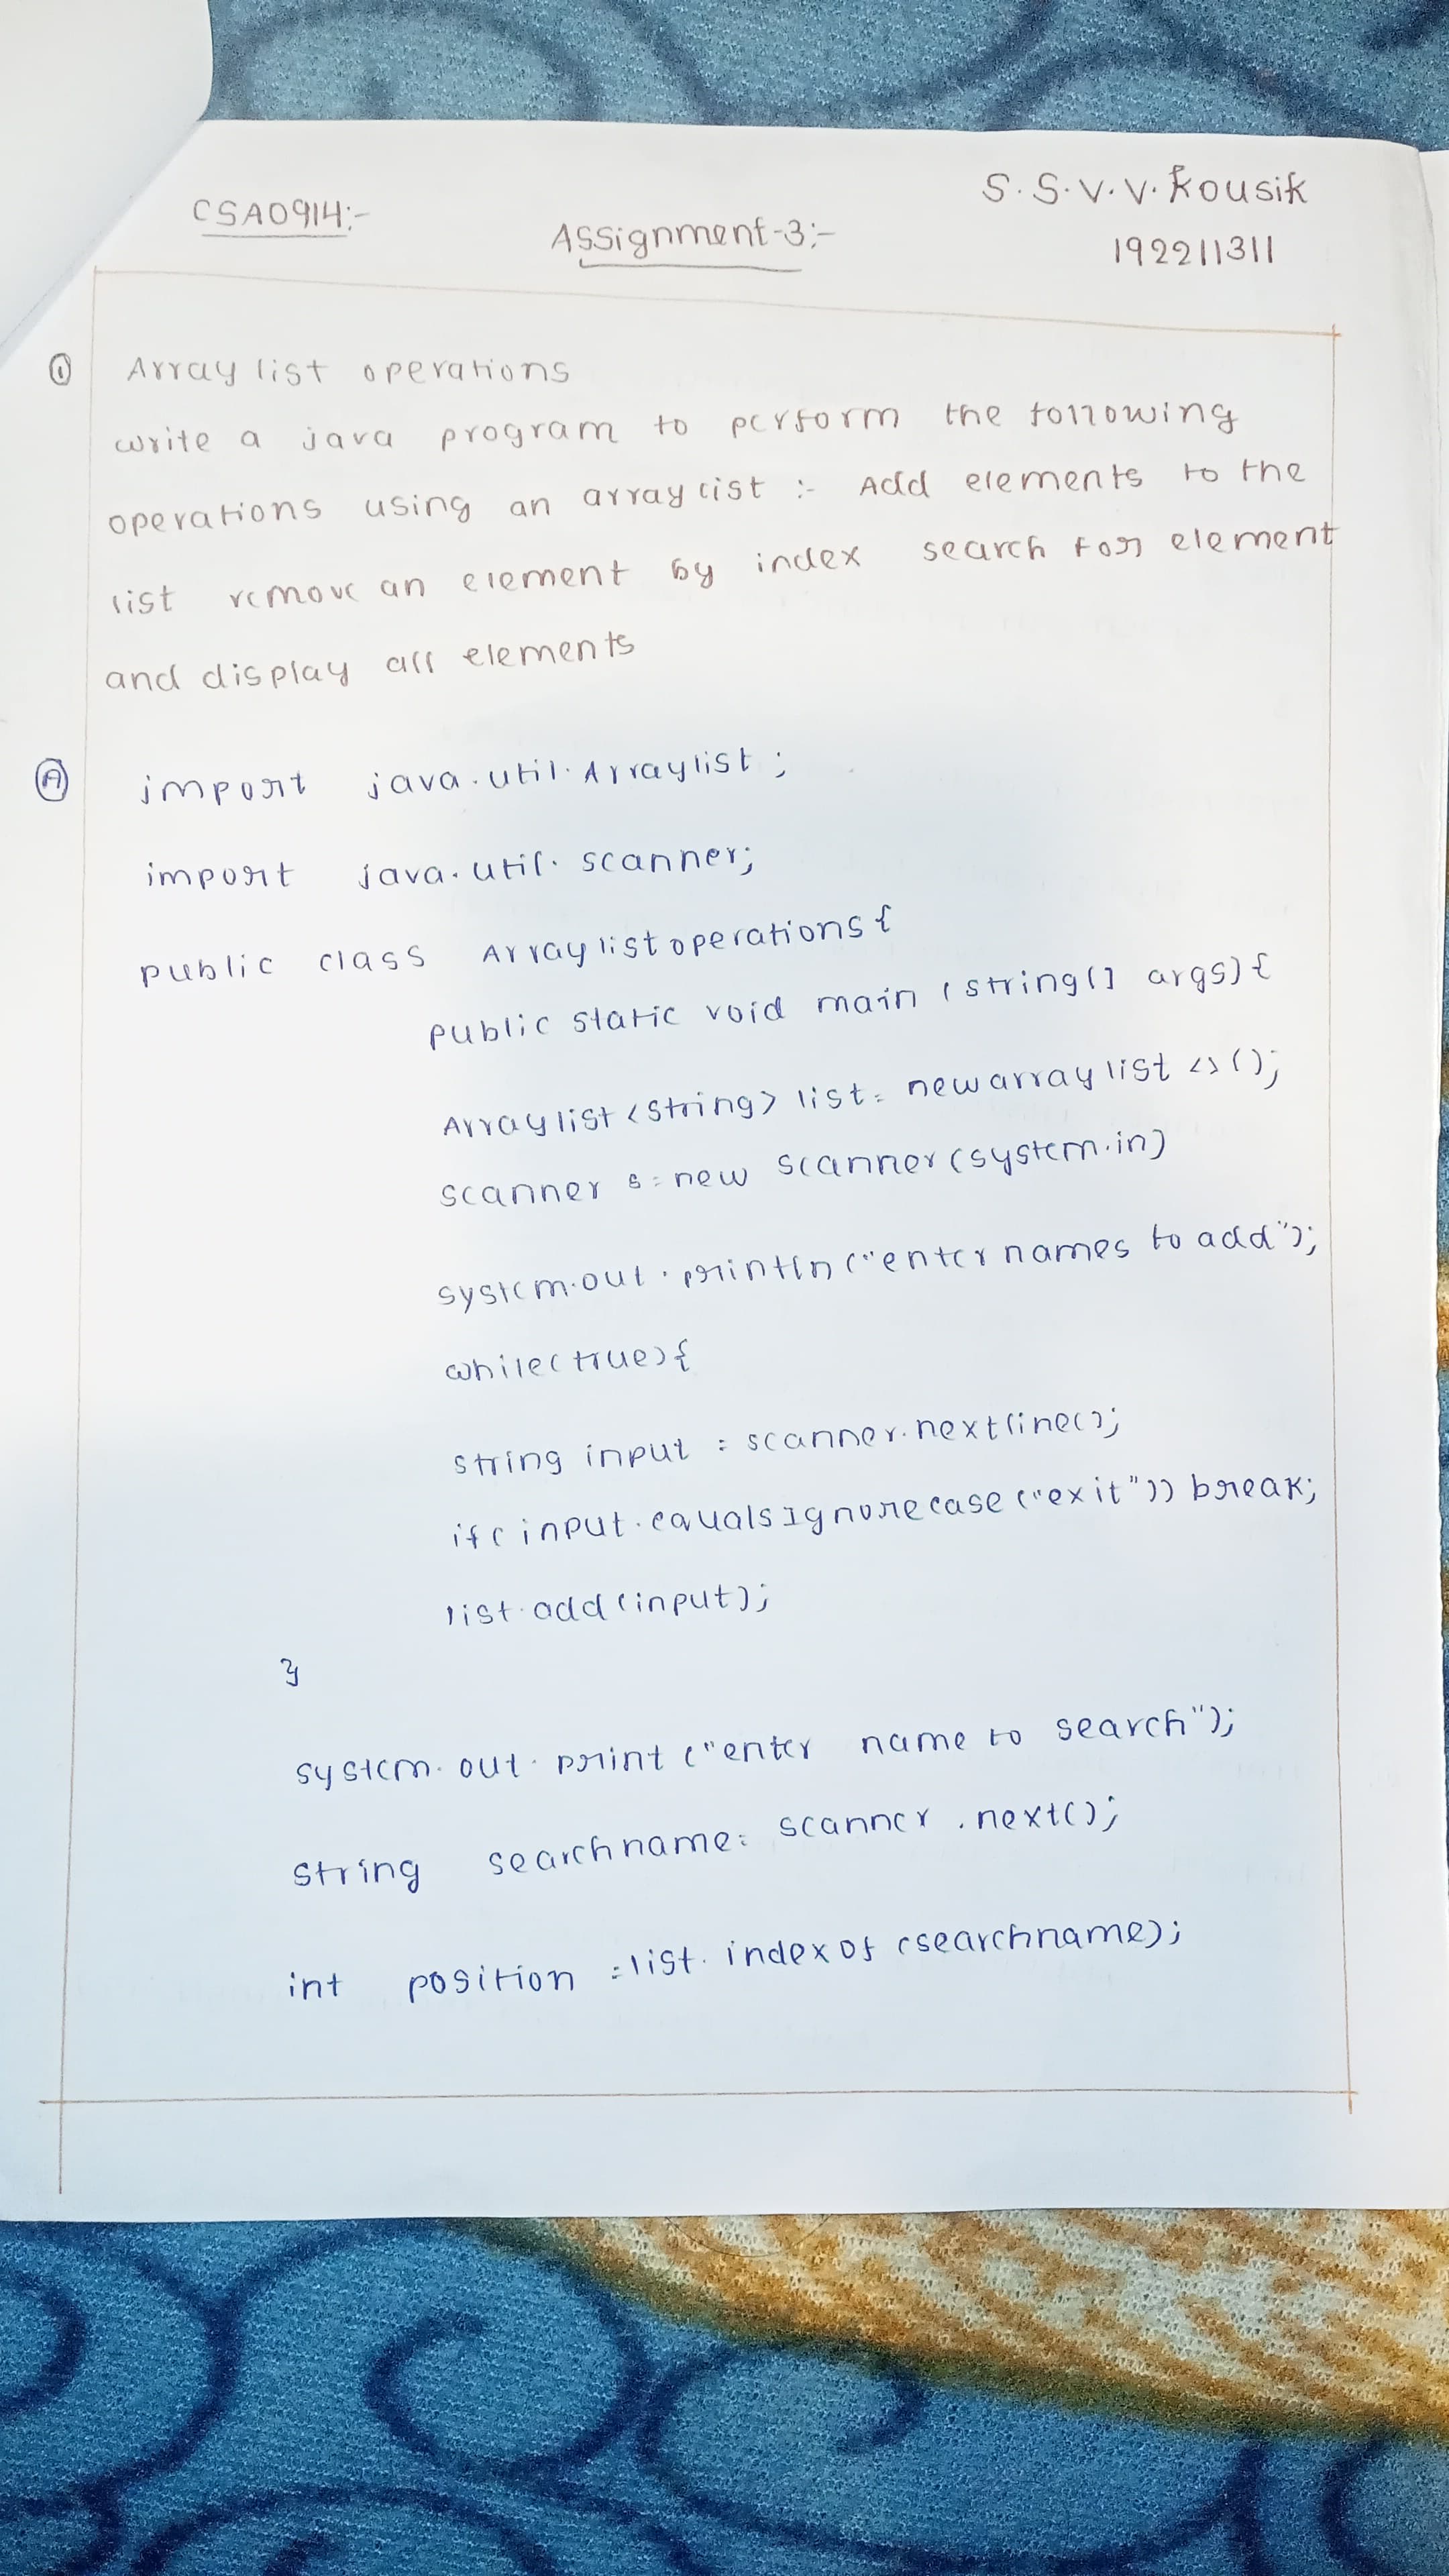 CSA0914:-
Assignment-3:-
S.S.V.V.Kousik
192211311
① Array list operations
write a java program to perform the following
operations using an array list :- Add elements to the
list remove an element by index search for element
and display all elements
Ⓐ import java.util.Arraylist;
import java.util.scanner;
public class Arraylistoperations{
public static void main (string[] args){
Arraylist<string> list= new arraylist <>();
scanner s=new scanner(system.in)
system.out.println("enter names to add");
while(true){
string input = scanner.nextline();
if(input.equalsIgnorecase("exit")) break;
list.add(input);
}
system.out.print("enter name to search");
string searchname= scanner.next();
int position =list.indexof(searchname);